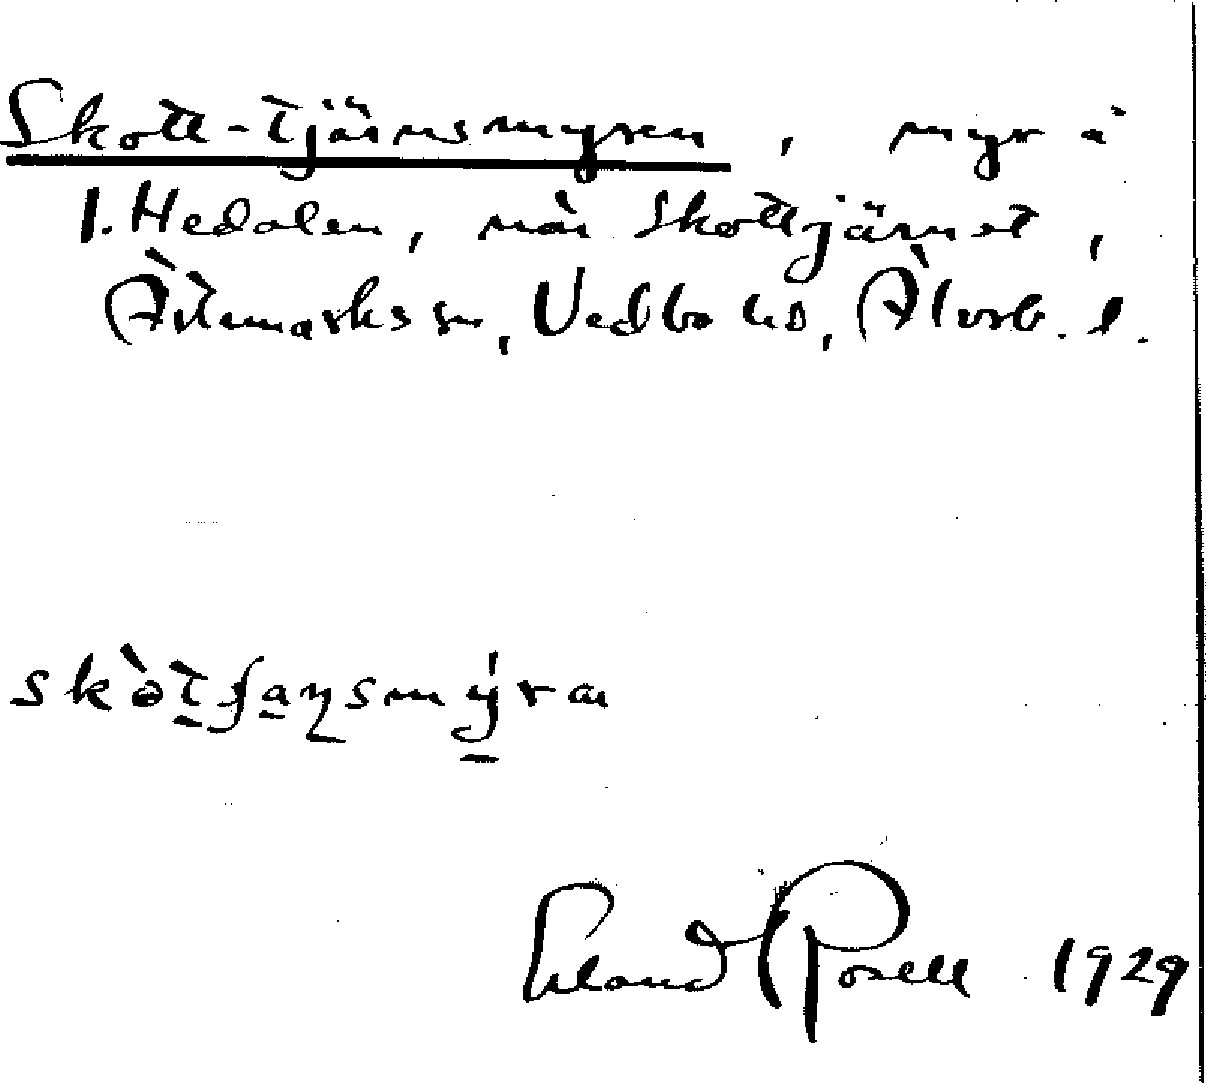 Skott-tjärnsmyren, myr i
1. Hedalen, när Skottjärnet,
Ärtemarks sn, Vedbo hd, Älvsb. l.
skòtʃaɳsmýra
Erland Rosell 1929